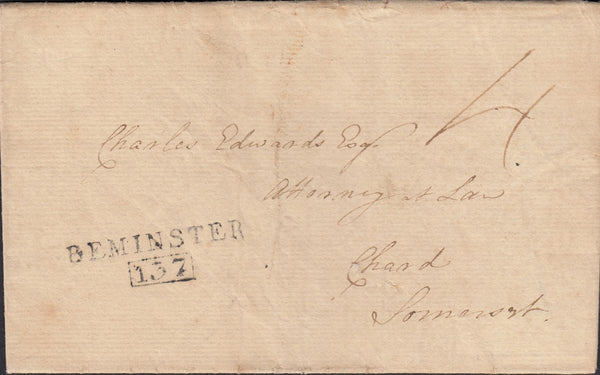 4
Charles Edwards Esq.
Attorney at Law
BEMINSTER
137
Chard
Somerset.